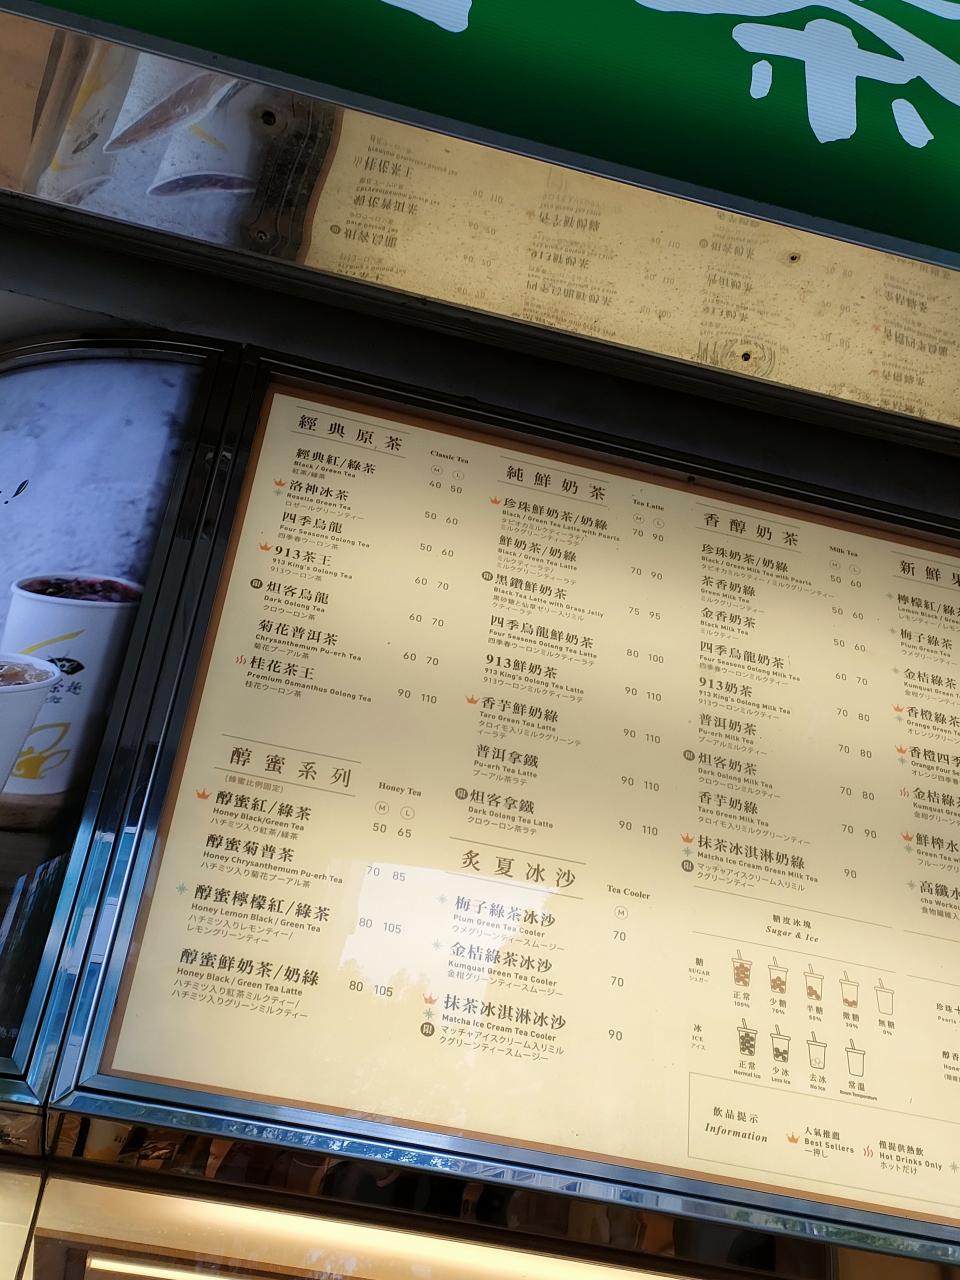 茶
經典原茶
Classic Tea
M L
經典紅/綠茶 40 50
Black / Green Tea
紅茶/緑茶
洛神冰茶 50 60
Roselle Green Tea
ロゼールグリーンティー
四季烏龍 50 60
Four Seasons Oolong Tea
四季春ウーロン茶
913茶王 60 70
913 King's Oolong Tea
913ウーロン茶
限 炟客烏龍 60 70
Dark Oolong Tea
クロウーロン茶
菊花普洱茶 60 70
Chrysanthemum Pu-erh Tea
菊花プーアル茶
桂花茶王 90 110
Premium Osmanthus Oolong Tea
桂花ウーロン茶
醇蜜系列
(蜂蜜比例固定)
Honey Tea
M L
醇蜜紅/綠茶 50 65
Honey Black/Green Tea
ハチミツ入り紅茶/緑茶
醇蜜菊普茶 70 85
Honey Chrysanthemum Pu-erh Tea
ハチミツ入り菊花プーアル茶
醇蜜檸檬紅/綠茶 80 105
Honey Lemon Black / Green Tea
ハチミツ入りレモンティー/
レモングリーンティー
醇蜜鮮奶茶/奶綠 80 105
Honey Black / Green Tea Latte
ハチミツ入り紅茶ミルクティー/
ハチミツ入りグリーンミルクティー
純鮮奶茶
Tea Latte
M L
珍珠鮮奶茶/奶綠 70 90
Black / Green Tea Latte with Pearls
タピオカミルクティーラテ/
ミルクグリーンティーラテ
鮮奶茶/奶綠 70 90
Black / Green Tea Latte
ミルクティーラテ/
ミルクグリーンティーラテ
限 黑鑽鮮奶茶 75 95
Black Tea Latte with Grass Jelly
黒砂糖と仙草ゼリー入りミル
クティーラテ
四季烏龍鮮奶茶 80 100
Four Seasons Oolong Tea Latte
四季春ウーロンミルクティーラテ
913鮮奶茶 90 110
913 King's Oolong Tea Latte
913ウーロンミルクティーラテ
香芋鮮奶綠 90 110
Taro Green Tea Latte
タロイモ入りミルクグリーンテ
ィーラテ
普洱拿鐵 90 110
Pu-erh Tea Latte
プーアル茶ラテ
限 炟客拿鐵 90 110
Dark Oolong Tea Latte
クロウーロン茶ラテ
炙夏冰沙
Tea Cooler
M
梅子綠茶冰沙 70
Plum Green Tea Cooler
ウメグリーンティースムージー
金桔綠茶冰沙 70
Kumquat Green Tea Cooler
金柑グリーンティースムージー
抹茶冰淇淋冰沙 90
Matcha Ice Cream Tea Cooler
限 マッチャアイスクリーム入りミル
クグリーンティースムージー
香醇奶茶
Milk Tea
M L
珍珠奶茶/奶綠 50 60
Black / Green Milk Tea with Pearls
タピオカミルクティー / ミルクグリーンティー
茶香奶綠 50 60
Green Milk Tea
ミルクグリーンティー
金香奶茶 50 60
Black Milk Tea
ミルクティー
四季烏龍奶茶 60 70
Four Seasons Oolong Milk Tea
四季春ウーロンミルクティー
913奶茶 70 80
913 King's Oolong Milk Tea
913ウーロンミルクティー
普洱奶茶 70 80
Pu-erh Milk Tea
プーアルミルクティー
限 炟客奶茶 70 80
Dark Oolong Milk Tea
クロウーロンミルクティー
香芋奶綠 70 90
Taro Green Milk Tea
タロイモ入りミルクグリーンティー
抹茶冰淇淋奶綠 90
Matcha Ice Cream Green Milk Tea
限 マッチャアイスクリーム入りミル
クグリーンティー
糖度冰塊
Sugar & Ice
糖
SUGAR
シュガー
正常 少糖 半糖 微糖 無糖
100% 70% 50% 30% 0%
冰
ICE
アイス
正常 少冰 去冰 常溫
Normal Ice Less Ice No Ice Room Temperature
飲品提示
Information
人氣推薦
Best Sellers
一押し
僅提供熱飲
Hot Drinks Only
ホットだけ
新鮮果
檸檬紅/綠
Lemon Black /
レモンティー / レモン
梅子綠茶
Plum Green Tea
ウメグリーンティー
金桔綠茶
Kumquat Green T
金柑グリーンティー
香橙綠茶
Orange Green T
オレンジグリーン
香橙四季
Orange Four Se
オレンジ四季春
金桔綠
Kumquat Green
金柑グリーン
鮮榨水
Green Tea w
フルーツグリ
高纖水
cha Workou
食物繊維入
珍珠
Pearls
醇香
Hone